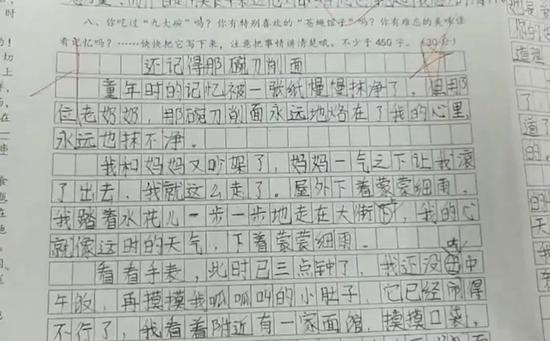 八、你吃过“九大碗”吗？你有特别喜欢的“苍蝇馆子”吗？你有难忘的美味佳
看记忆吗？……快快把它写下来，注意把事情讲清楚哦。不少于450字。（30分）
还记得那碗刀削面
童年时的记忆被一张纸慢慢抹净了，但那
位老奶奶，那碗刀削面永远地烙在了我的心里，
永远也抹不净。
我和妈妈又吵架了，妈妈一气之下让我滚
了出去，我就这么走了。屋外下着蒙蒙细雨。
我踏着水花儿一步一步地走在大街下，我的心
就像这时的天气，下着蒙蒙细雨。
看看手表，此时已三点钟了，我还没吃中
午饭，再摸摸我呱呱叫的小肚子，它已经饿得
不行了，我看着附近有一家面馆，摸摸口袋，